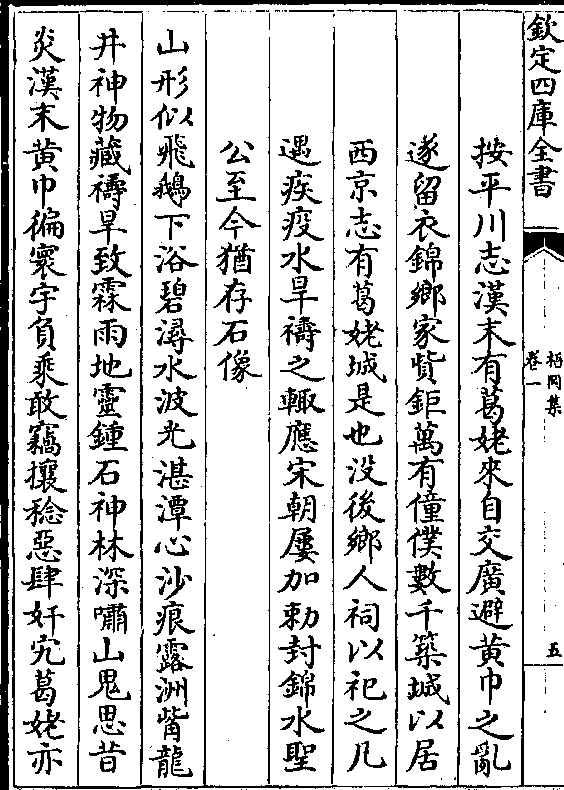 欽定四庫全書
梧岡集
卷一
五
按平川志漢末有葛姥來自交廣避黄巾之亂
遂留衣錦鄉家貲鉅萬有僮僕數千築城以居
西京志有葛姥城是也没後鄉人祠以祀之凡
遇疾疫水旱禱之輙應宋朝屢加勅封錦水聖
公至今猶存石像
山形似飛鵝下浴碧潯水波光湛潭心沙痕露洲觜龍
井神物藏禱旱致霖雨地靈鍾石神林深嘯山鬼思昔
炎漢末黄巾徧寰宇負乘敢竊攘稔惡肆奸宄葛姥亦